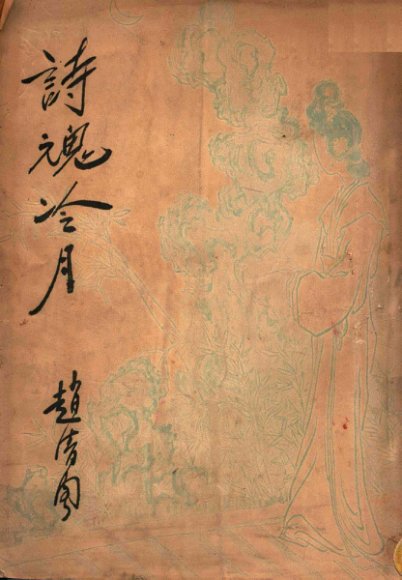 詩魂冷月
趙清閣